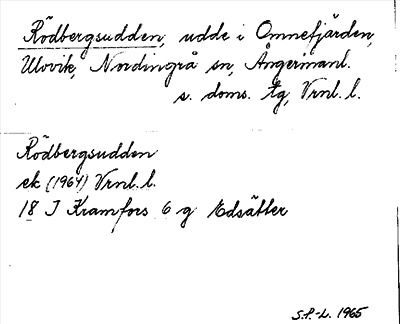 Rödbergsudden, udde i Omnefjärden,
Ulovik, Nordingrå sn, Ångermanl.
s. doms. tg, Vrnl. l.
Rödbergsudden
ek (1964) Vrnl. l.
18 J Kramfors 6 g Edsätter
S.P.-L. 1965